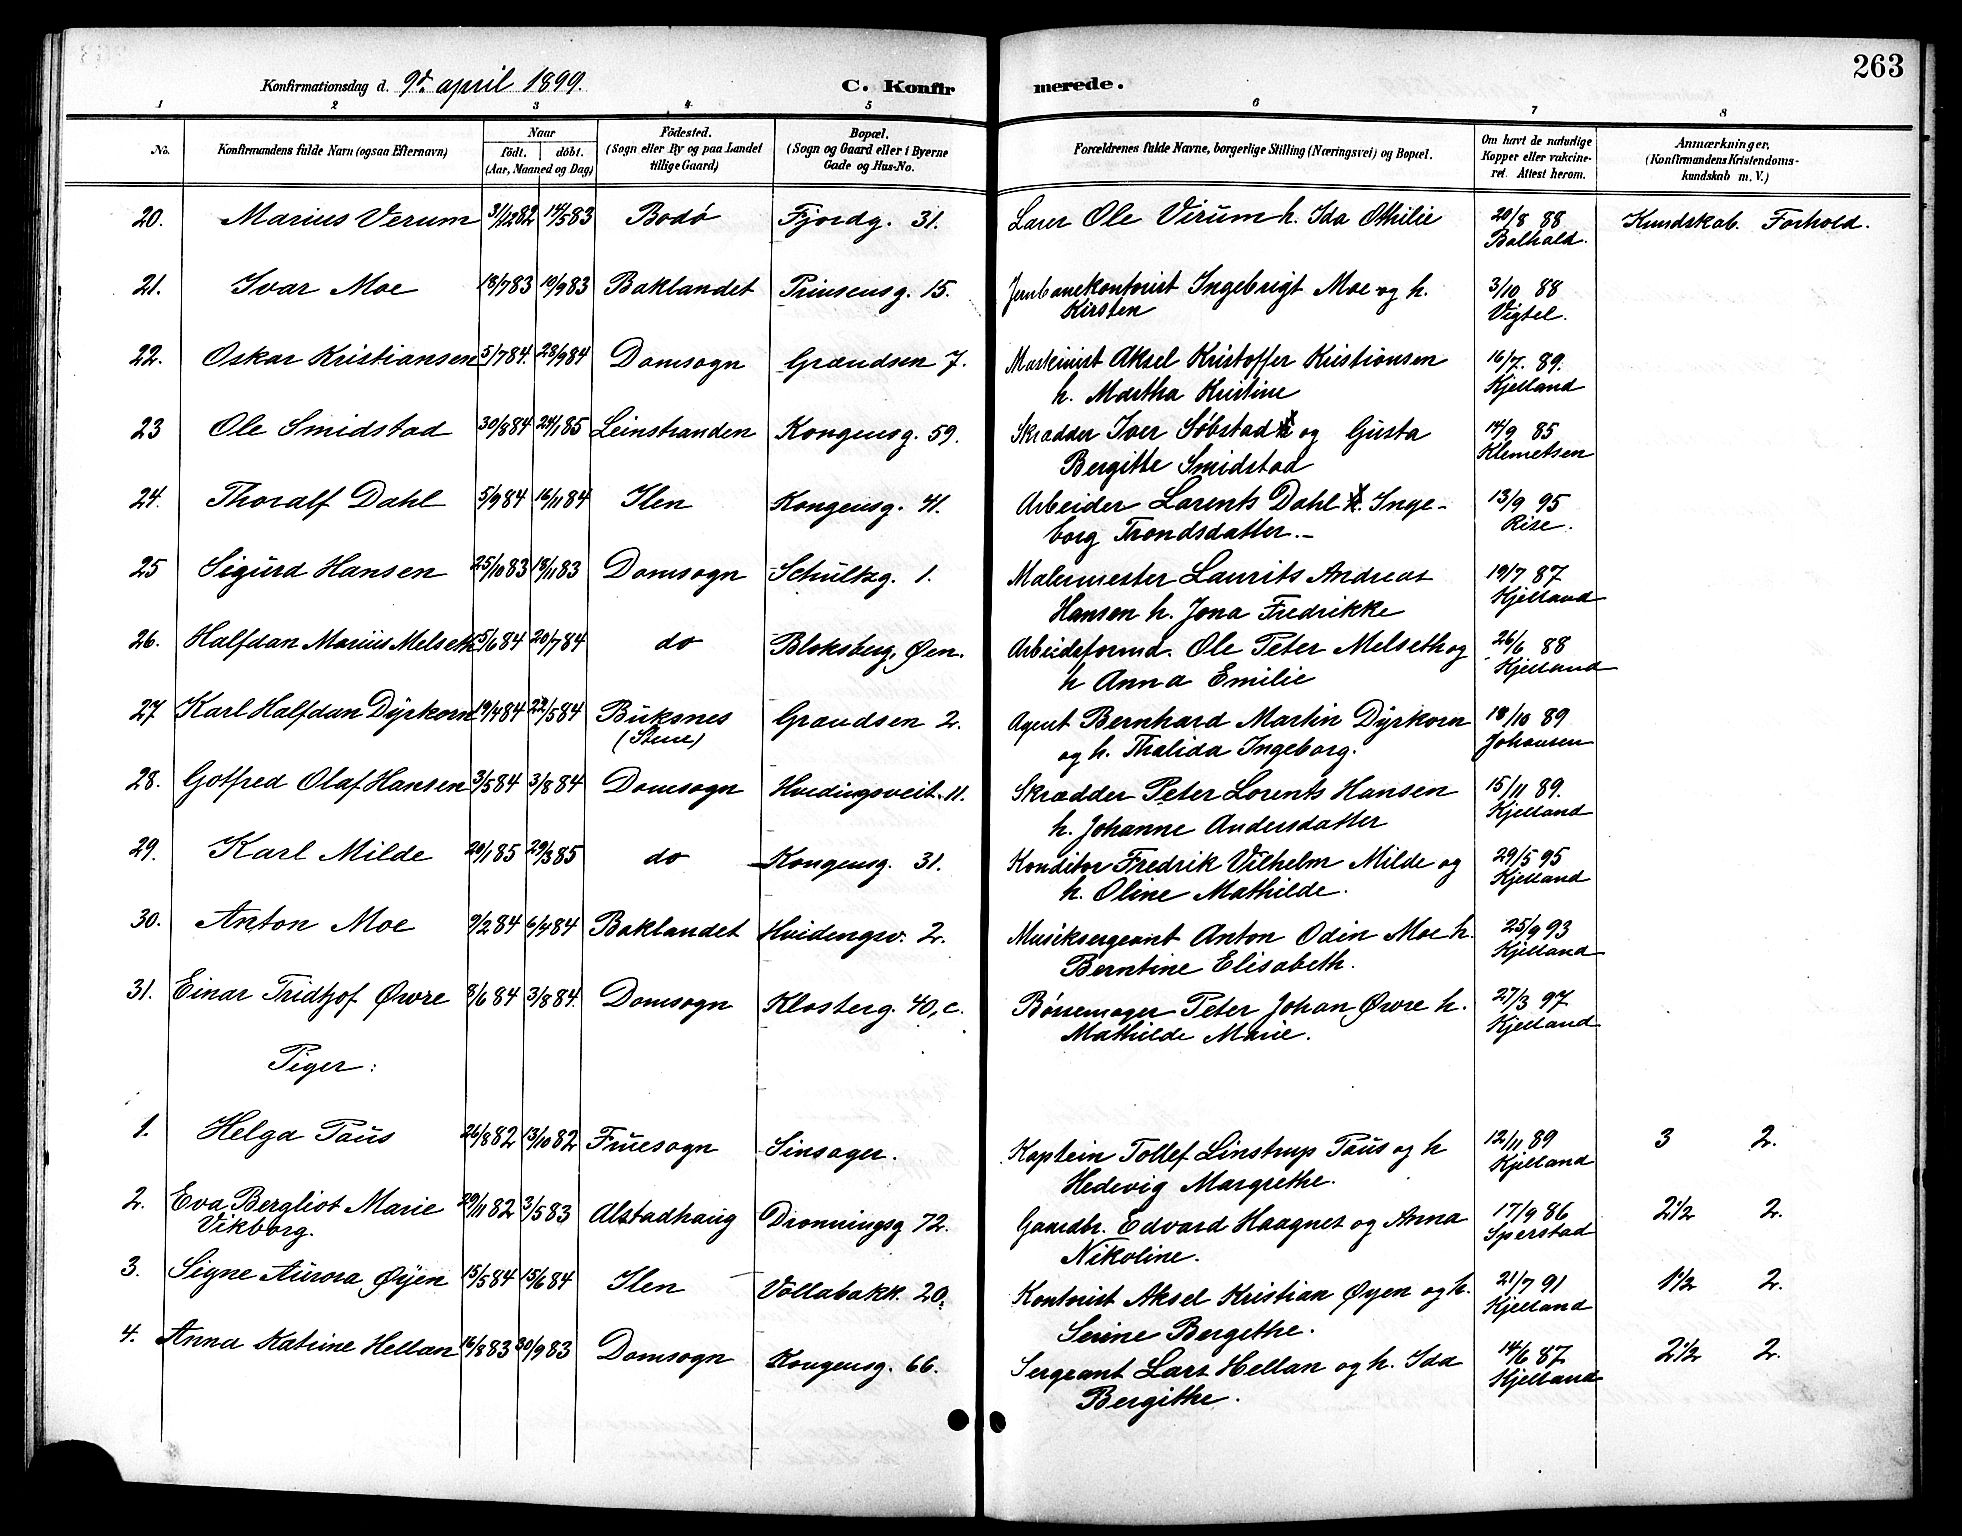 263
Konfirmationsdag d. 9de april 1899.
C. Konfirmerede.
1 2 3 4 5 6 7 8
No.
Konfirmandens fulde Navn (ogsaa Efternavn)
Naar
født. døbt.
(Aar, Maaned og Dag)
Fødested.
(Sogn eller By og paa Landet
tillige Gaard)
Bopæl.
(Sogn og Gaard eller i Byerne
Gade og Hus-No.
Forældrenes fulde Navne, borgerlige Stilling (Næringsvei) og Bopæl.
Om havt de naturlige
Kopper eller vakcine-
ret. Attest herom.
Anmærkninger,
(Konfirmandens Kristendoms-
kundskab m. V.)
20. Marius Verum 31/12 82 14/5 83 Bodø Fjordg. 31. Lærer Ole Virum h. Ida Othilie 20/8 88 Kundskab. Forhold.
Balhald.
21. Ivar Moe 18/7 83 19/9 83 Baklandet Prinsensg. 15. Jernbanekontorist Ingebrigt Moe og h. 3/10 88
Kirsten Vigtel.
22. Oskar Kristiansen 5/7 84. 28/9 84 Domsogn Grændsen 7. Maskinist Aksel Kristoffer Kristiansen 16/7. 89.
h. Martha Kristine Kjelland
23 Ole Smidstad 30/8 84 24/1 85 Leinstranden Kongensg. 59. Skrædder Iver Søbstad og Gusta 14/9 85
Bergitte Smidstad Klemetsen
24. Thoralf Dahl 5/9 84 16/11 84 Ilen Kongensg. 41. Arbeider Lorents Dahl Inge-
borg Trondsdatter.- 13/9 95
Rise.
25 Sigurd Hansen 25/10 83 18/11 83 Domsogn Schultzg. 1. Malermester Laurits Andreas 19/7 87
Hansen h. Jona Fredrikke Kjelland
26. Halfdan Marius Melseth 5/6 84 20/7 84 do Bloksberg, Øen. Arbeideformd. Ole Peter Melseth og 26/6 88
h Anna Emilie Kjelland
27 Karl Halfdan Dyrkorn 19/4 84 22/5 84 Buksnes Grændsen 2. Agent Bernhard Martin Dyrkorn 18/10 89
(Stene) og h. Thalida Ingeborg. Johansen
28. Gotfred Olaf Hansen 3/5 84 3/8 84 Domsogn Hvedingsveit. 11. Skrædder Peter Lorents Hansen 15/11 89.
h. Johanne Andersdatter Kjelland
29. Karl Milde 20/1 85 29/3 85 do Kongensg. 31. Konditor Fredrik Vilhelm Milde og 29/5 95
h. Oline Mathilde. Kjelland
30. Anton Moe 9/2 84 6/4 84 Baklandet Hvidengsv. 2. Musiksergeant Anton Odin Moe h. 25/9 93
Berntine Elisabeth. Kjelland
31. Einar Fridtjof Øwre 8/6 84 3/8 84. Domsogn Klosterg. 40, c. Bøssemager Peter Johan Øwre h. 27/3 97
Mathilde Marie. Kjelland
Piger:
1. Helga Paus 26/8 82 13/10 82 Fruesogn Sinsager. Kaptein Tollef Linstrup Paus og h 12/11 89 3 2.
Hedevig Margrethe. Kjelland
2. Eva Bergliot Marie 29/11 82 3/5 83 Alstadhaug Dronningsg 72. Gaardbr. Edvard Haagnes og Anna 17/9 86 2 1/2 2.
Vikborg. Nikoline. Sperstad
3. Signe Aurora Øyen 15/5 84 15/6 84 Ilen Vollabakk. 20. Kontorist Aksel Kristian Øyen og h. 21/7 91 1 1/2 2.
Serine Bergethe. Kjelland
4. Anna Katrine Hellan 16/8 83 30/9 83 Domsogn Kongensg. 66. Sergeant Lars Hellan og h. Ida 14/6 87 2 1/2 2.
Bergithe. Kjelland